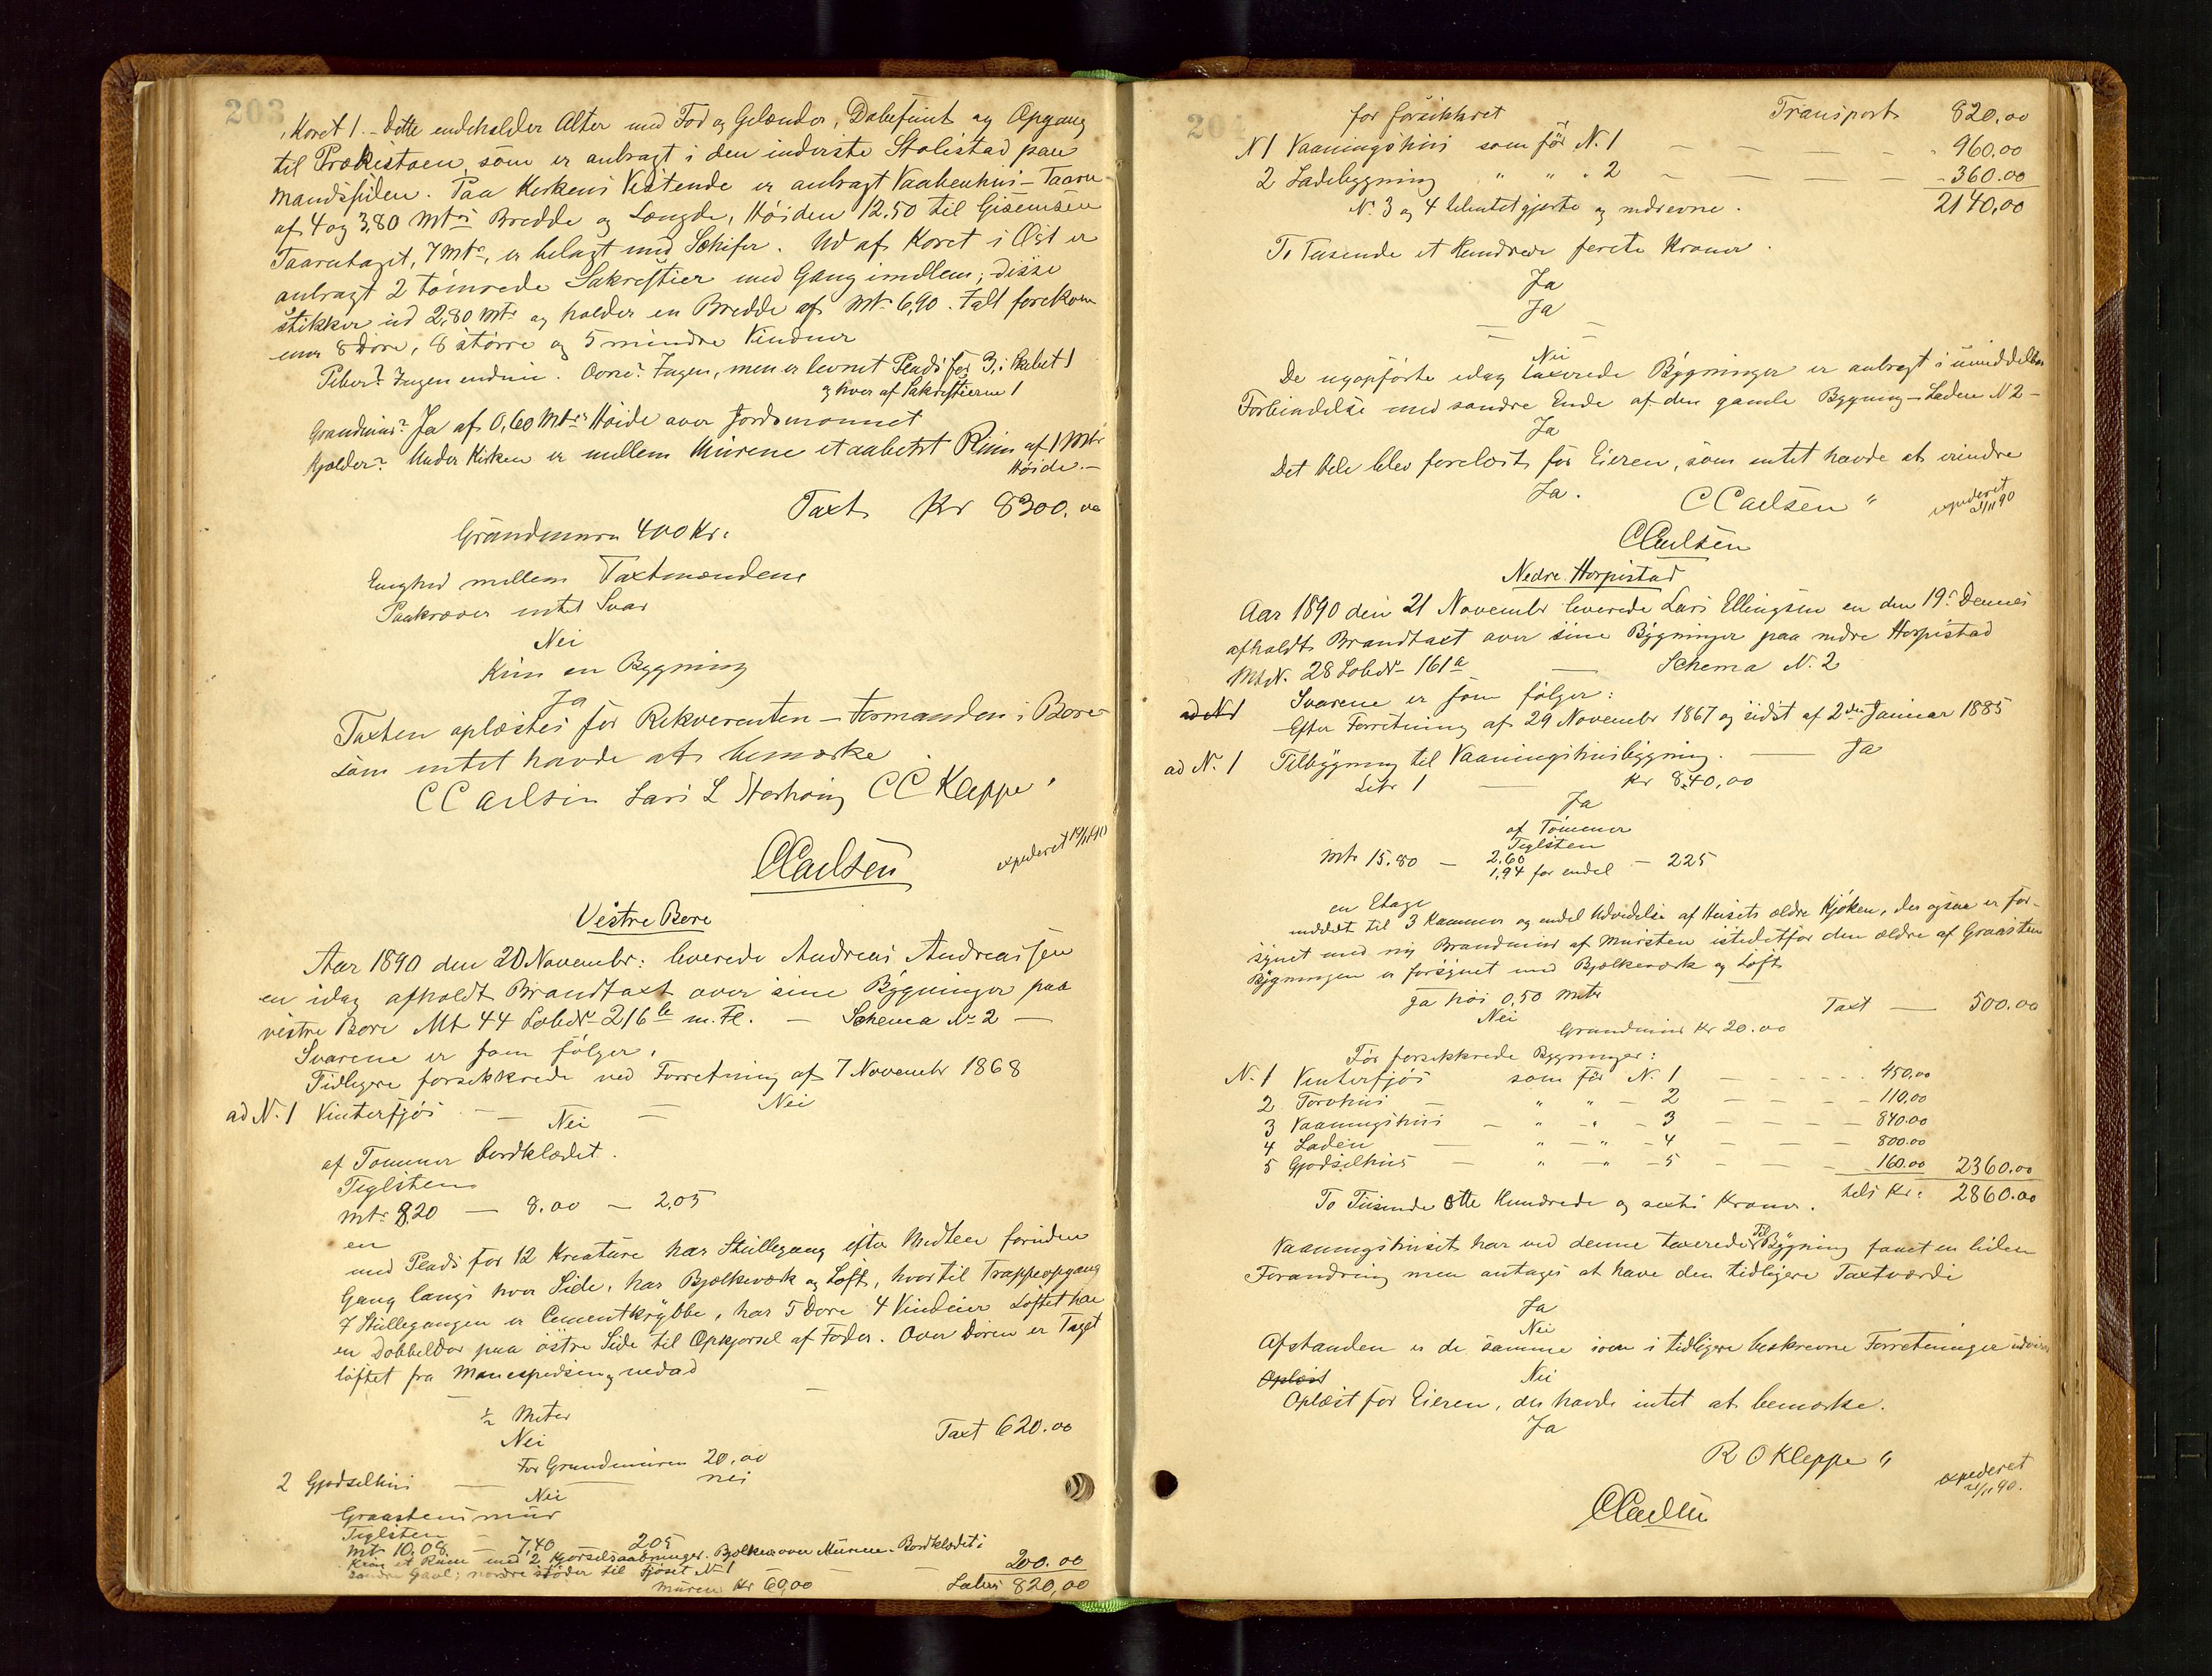 203
Koret 1. – Dette indeholder Alter med Fod og Gelænder, Døbefunt og Opgang
til Prækestolen, som er anbragt i den inderste Stolestad paa
Mandssiden. Paa Kirkens Vestende er anbragt Vaabenhus – Taarn
af 4 og 3,80 Mtrs Bredde og Længde, Høiden 12,50 til Gisemsen
Taarntaget, 7 Mtr, er belagt med Schifer. Ud af Koret i Øst er
anbragt 2 tømrede Sakrestier med Gang imellem; disse
stikker ud 2,80 Mtr og holder en Bredde af Mtr 6,90. Ialt forekom
mer 8 Døre, 8 større og 5 mindre Vinduer
Piber? Ingen endnu. Ovne? Ingen, men er levnet Plads for 3, i Skibet 1
og hver af Sakrestierne 1
Grundmur? Ja af 0,60 Mtrs Høide over Jordsmonnet
Kjelder? Under Kirken er mellem Murene et aabent Rum af 1 Mtr
Høide. –
Taxt Kr 8300.00
Grundmuren 400 Kr.
Enighed mellem Taxtmændene
Paakræver intet Svar
Nei
Kun en Bygning
Ja
Taxten oplæstes for Rekverenten – Formanden i Bore
som intet havde at bemærke
C C Carlsen Lars L Nærheim C C Kleppe
CCarlsen
expederet 19/11 90
Vestre Bore
Aar 1890 den 20 Novembr: leverede Andreas Andreassen
en idag afholdt Brandtaxt over sine Bygninger paa
vestre Bore Mt 44 LøbeNr 216 b m. Fl. – Schema No 2 –
Svarene er som følger.
Tidligere forsikkrede ved Forretning af 7 Novembr 1868
ad N. 1 Vinterfjøs – – Nei
Nei
af Tømmer bordklædet.
Teglsten
Mtr 8,20 – 8.00 – 2,05
en
med Plads for 12 Kreature har Stullegang efter Midten foruden
Gang langs hver Side, har Bjelkeværk og Loft, hvortil Trappeopgang
I Stullegangen er Cementkrybbe, har 5 Døre 4 Vinduer Loftet har
en Dobbeldør paa østre Side til Opkjørsel af Foder. Over Døren er Taget
løftet fra Mønespidsen nedad
½ Meter
Nei
Taxt 620.00
For Grundmuren 20,00
2 Gjødselhus – nei
Nei
Graastens mur
Teglsten
Mtr 10,08 – 7,40 205
Kun et Rum med 2 Kjørselsaabninger. Bjelker over Murene. Bordklædt i
søndre Gavl; nordre støder til Fjøset No 1 – – 200.00
Muren Kr 60,00 Lateris 820,00
204
før forsikkret Transport 820,00
N 1 Vaaningshus som før N. 1 – – – – 960.00
2 Ladebygning " " " 2 – – – – 360.00
No. 3 og 4 tilintetgjorte og nedrevne. 2140,00
To Tusende et Hundrede førete Kroner.
Ja
Ja
– –
Nei
De nyopførte idag taxerede Bygninger er anbragt i umiddelbar
Forbindelse med søndre Ende af den gamle Bygning – Laden N 2 –
Ja
Det Hele blev forelæst for Eieren, som intet havde at erindre
Ja. C Carlsen "
expederet 21/11 90
CCarlsen
Nedre Horpestad
Aar 1890 den 21 Novembr leverede Lars Ellingsen en den 19de Dennes
afholdt Brandtaxt over sine Bygninger paa nedre Horpestad
MtN. 28 LøbeNr 161a – Schema N. 2
Svarene er som følger:
ad N 1 Efter Forretning af 29 Novembr 1867 og sidst af 2den Januar 1885
ad N. 1 Tilbygning til Vaaningshusbygning. – Ja
Litr 1 – Kr 840,00
Ja
af Tømmer
Teglsten
Mtr 15.80 – 2,60 – 225
1,94 for endel
en Etage
inddelt til 3 Kammer og endel Udvidelse af Husets ældre Kjøken, der ogsaa er for-
synet med ny Brandmur af Mursten istedetfor den ældre af Graasten
Bygningen er forsynet med Bjelkeværk og Loft
Ja høi 0,50 Meter
Nei Taxt – 500.00
Grundmur Kr 20.00
Før forsikkrede Bygninger:
N. 1 Vinterfjøs som før N. 1 – – – 450,00
2 Torvhus – " " – 2 – – – 110,00
3 Vaaningshus – " " – 3 – – – 840.00
4 Laden – " – " – 4 – – – 800.00
5 Gjødselhus – " – " – 5 – – – 160.00 2360.00
To Tusinde Otte Hundrede og sexti Kroner. tils Kr. 2860.00
Vaaningshuset har ved denne taxerede Til Bygning faaet en liden
Forandring men antages at have den tidligere Taxtværdi
Ja
Nei
Afstanden er de samme som i tidligere beskrevne Forretninger udvises
Oplæst Nei
Oplæst for Eieren, der havde intet at bemærke.
Ja
R O Kleppe "
expederet 21/11 90.
CCarlsen